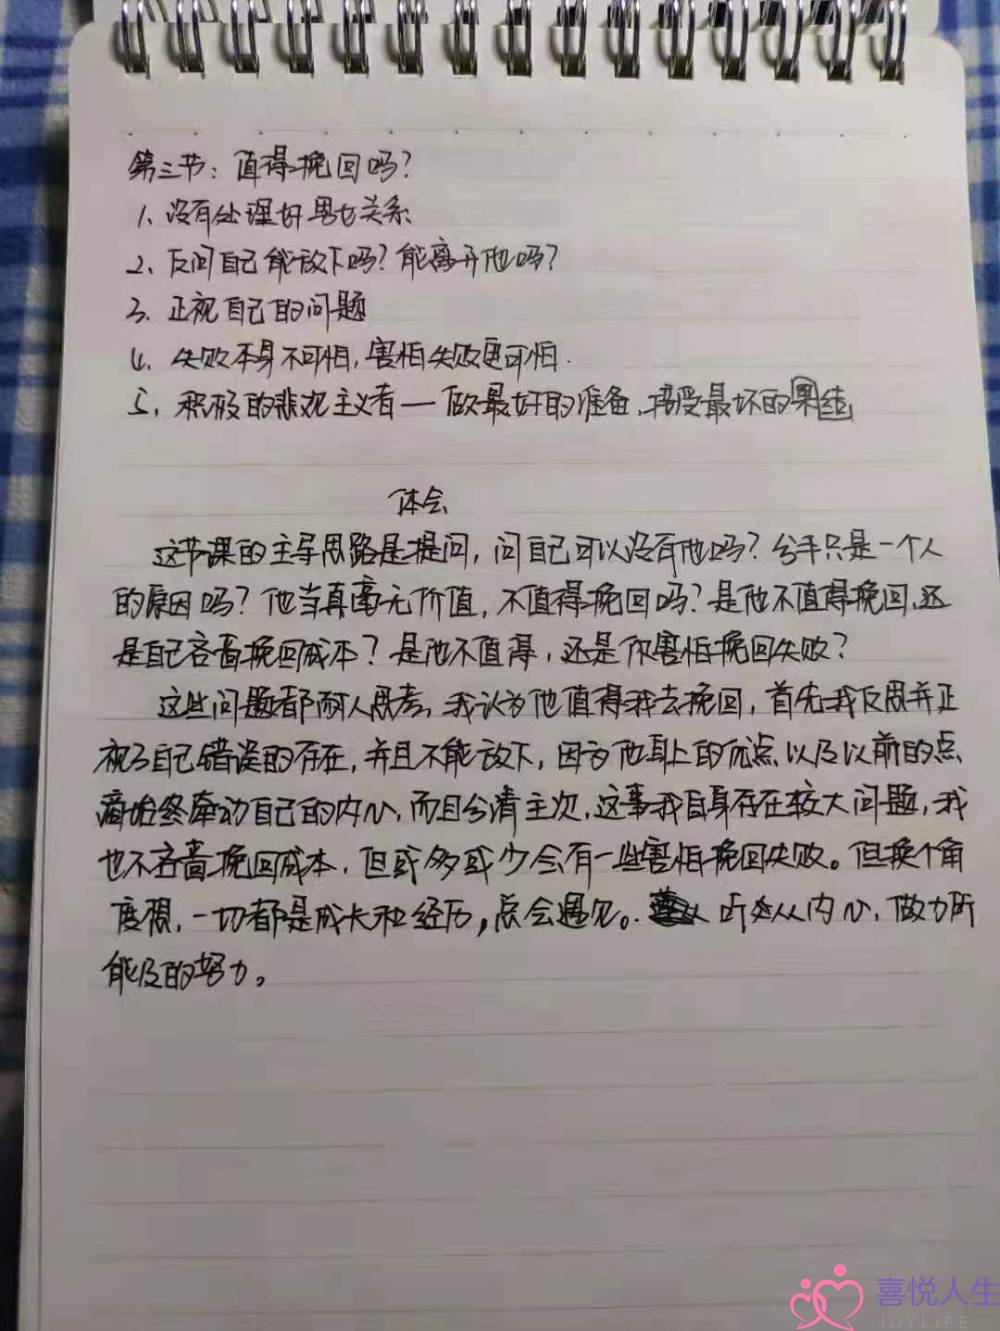 第三节：值得挽回吗？
1、没有处理好男女关系
2、反问自己能放下吗？能离开他吗？
3、正视自己的问题
4、失败本身不可怕，害怕失败更可怕.
5、积极的悲观主义者——做最好的准备、接受最坏的果结
体会
这节课的主导思路是提问，问自己可以没有他吗？分手只是一个人
的原因吗？他当真毫无价值，不值得挽回吗？是他不值得挽回，还
是自己吝啬挽回成本？是他不值得，还是你害怕挽回失败？
这些问题都耐人思考，我认为他值得我去挽回，首先我反思并正
视了自己错误的存在，并且不能放下，因为他身上的优点以及以前的点
滴始终牵动自己的内心，而且分清主次，这事我自身存在较大问题，我
也不吝啬挽回成本，但或多或少会有一些害怕挽回失败。但换个角
度想，一切都是成长和经历，总会遇见。听从内心，做力所
能及的努力。
喜悦人生
JOYLIFE